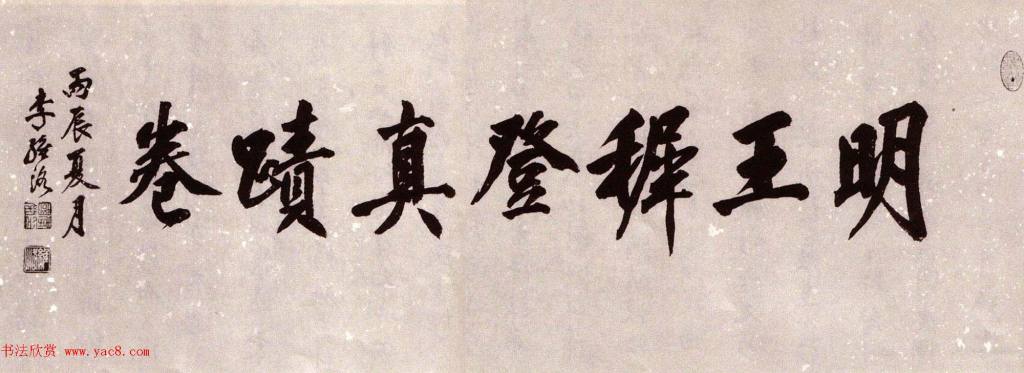 明王穉登真蹟卷
丙辰夏月
李經洛
书法欣赏 www.yac8.com